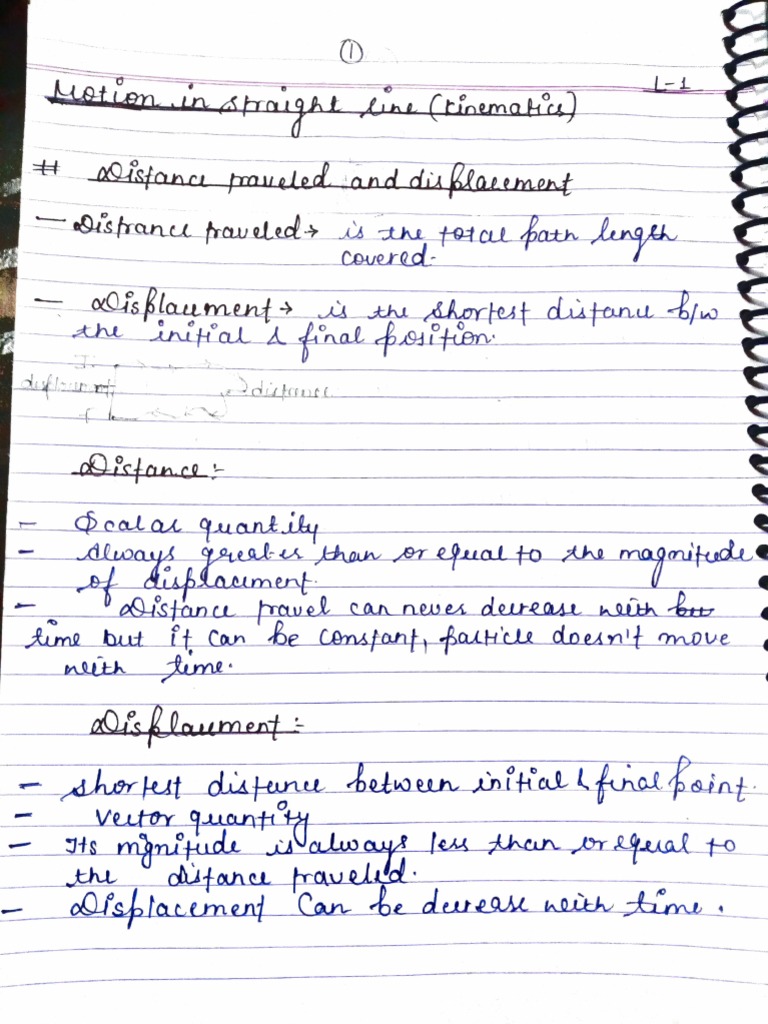 ①
L-1
Motion in straight line (kinematics)
# Distance traveled and displacement
- Distrance traveled → is the total path length
covered.
- Displacement → is the shortest distance b/w
the initial & final position.
distance
Distance :-
- Scalar quantity
- Always greater than or equal to the magnitude
of displacement.
- Distance travel can never decrease with but
time but it can be constant, particle doesn't move
with time.
Displacement :-
- shortest distance between initial & final point.
- Vector quantity
- Its mignitude is always less than or equal to
the distance traveled.
- Displacement Can be decrease with time.